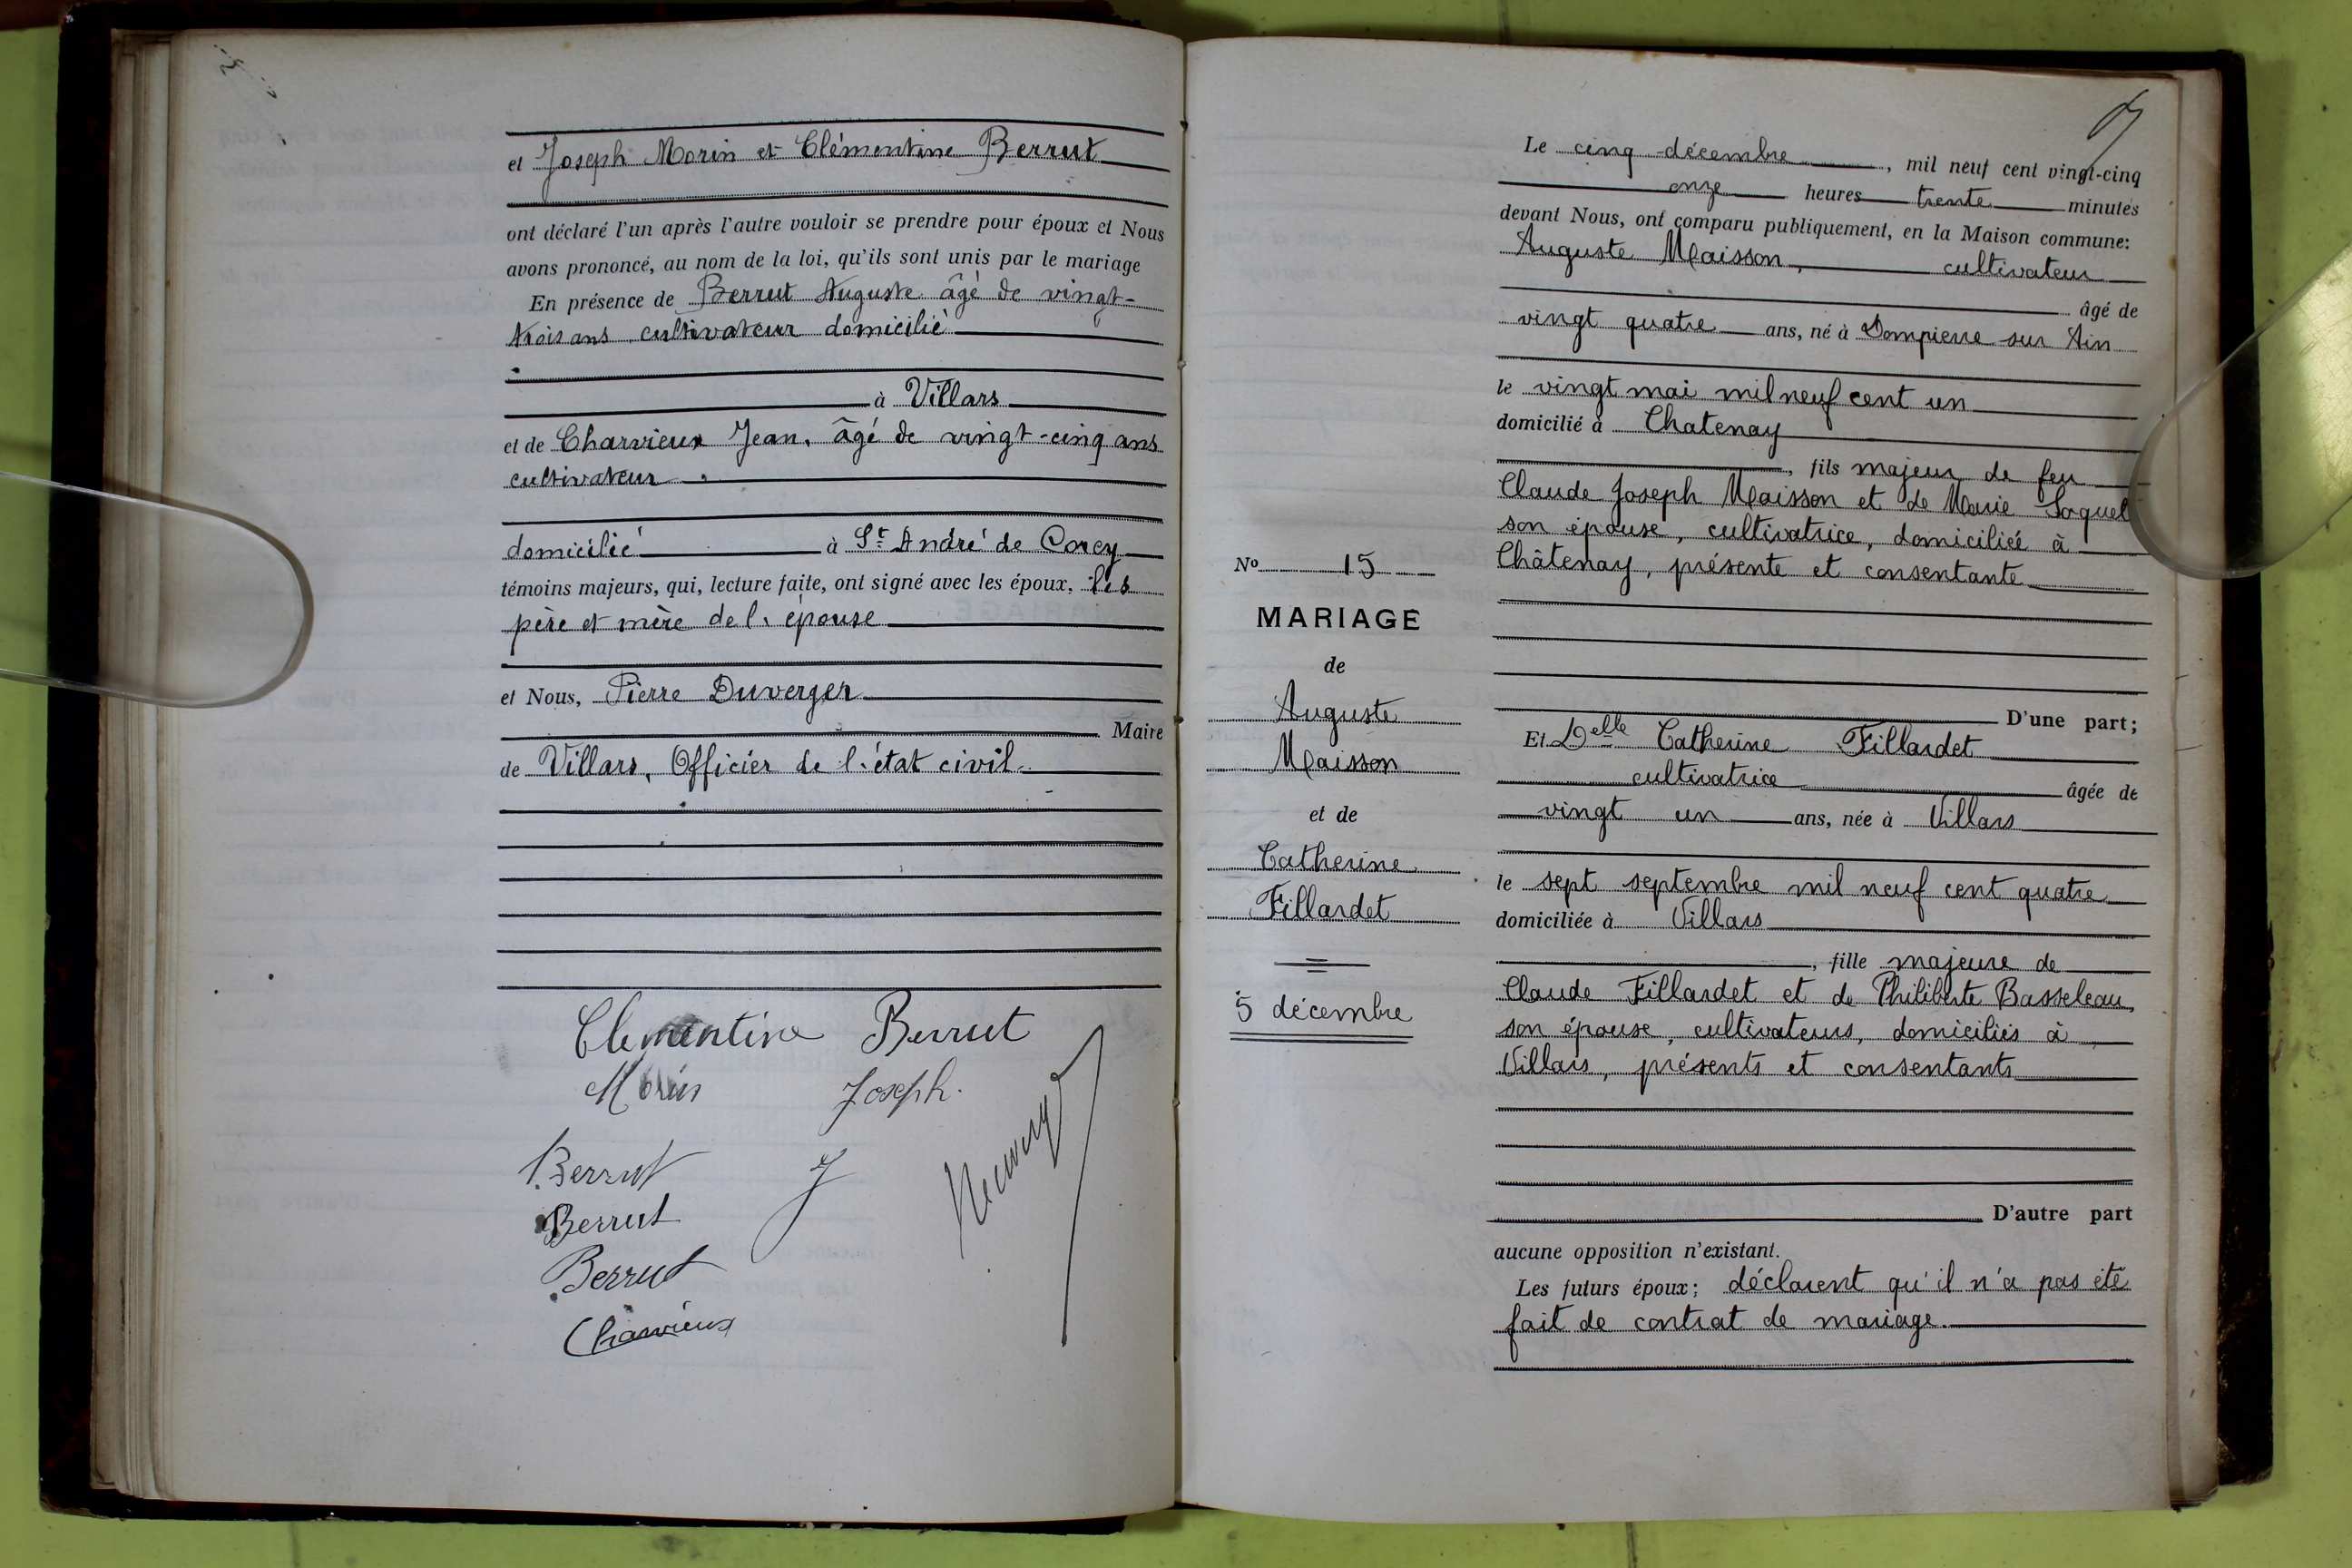 et Joseph Morin et Clémentine Berrut
ont déclaré l'un après l'autre vouloir se prendre pour époux et Nous
avons prononcé, au nom de la loi, qu'ils sont unis par le mariage
En présence de Berrut Auguste âgé de vingt-
trois ans cultivateur domicilié
à Villars
et de Charvieux Jean, âgé de vingt-cinq ans
cultivateur
domicilié à St André de Corcy
témoins majeurs, qui, lecture faite, ont signé avec les époux, les
père et mère de l'épouse
et Nous, Pierre Duverger
Maire
de Villars, Officier de l'état civil.
Clementine Berrut
Morin Joseph.
Berrut J
Berrut
Berrut
Charvieux
Le cinq décembre, mil neuf cent vingt-cinq
onze heures trente minutes
devant Nous, ont comparu publiquement, en la Maison commune:
Auguste Maisson, cultivateur
âgé de
vingt quatre ans, né à Dompierre sur Ain
le vingt mai mil neuf cent un
domicilié à Chatenay
, fils majeur de feu
Claude Joseph Maisson et de Marie
son épouse, cultivatrice, domiciliée à
Châtenay, présente et consentante
D'une part;
Et Delle Catherine Fillardet
cultivatrice âgée de
vingt un ans, née à Villars
le sept septembre mil neuf cent quatre
domiciliée à Villars
, fille majeure de
Claude Fillardet et de Philiberte Basseleau,
son épouse, cultivateurs, domiciliés à
Villars, présents et consentants
D'autre part
aucune opposition n'existant.
Les futurs époux; déclarent qu'il n'a pas été
fait de contrat de mariage.
No 15
MARIAGE
de
Auguste
Maisson
et de
Catherine
Fillardet
5 décembre